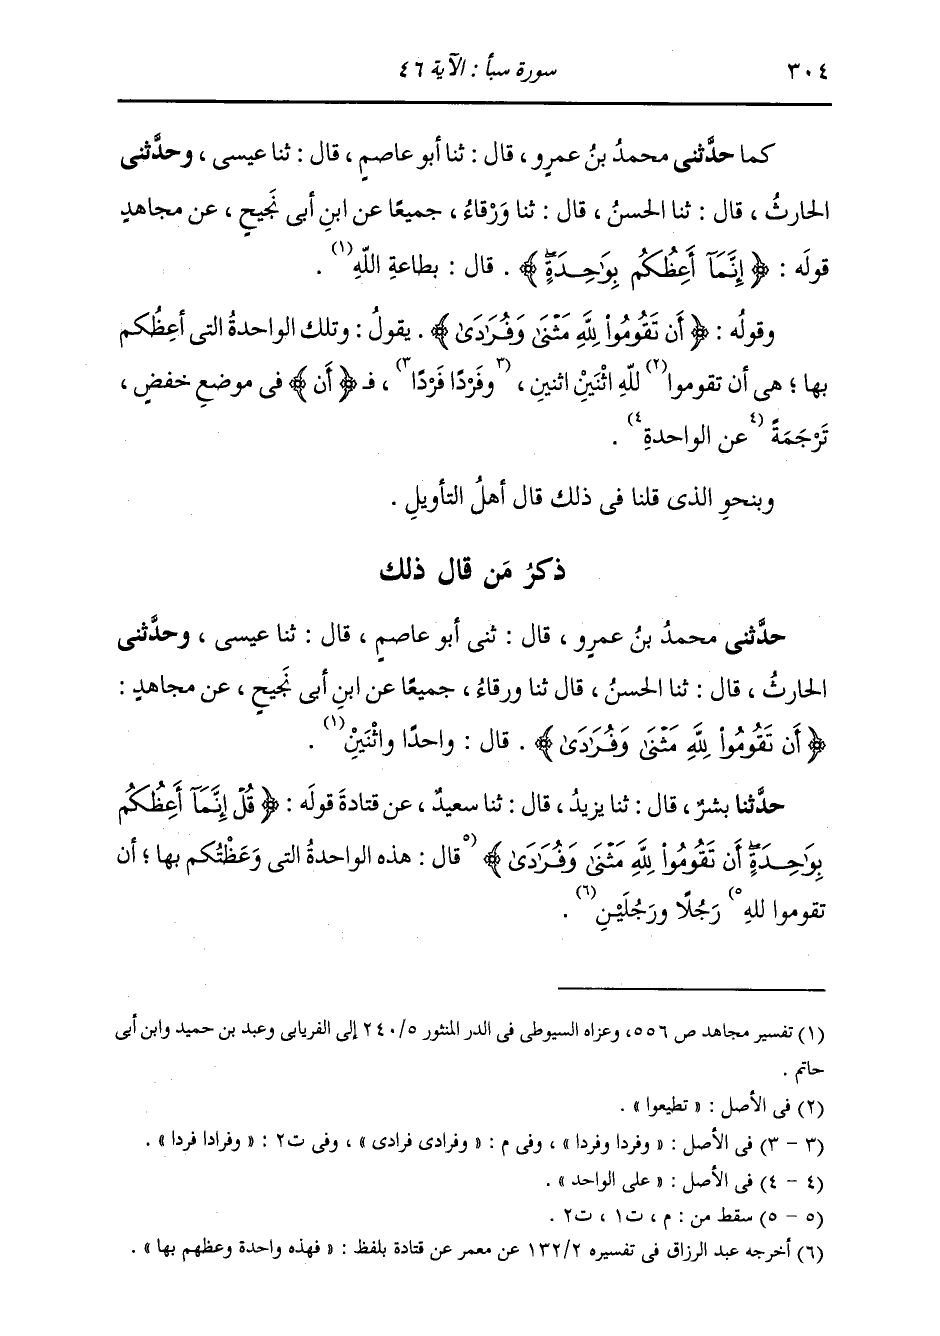 ٣٠٤ سورة سبأ : الآية ٤٦
كما حدَّثنى محمدُ بنُ عمرٍو ، قال : ثنا أبو عاصمٍ ، قال : ثنا عيسى ، وحدَّثنى
الحارثُ ، قال : ثنا الحسنُ ، قال : ثنا وَرْقاءُ ، جميعًا عن ابنِ أبى نَجيحٍ ، عن مجاهدٍ
قولَه : ﴿ إِنَّمَآ أَعِظُكُم بِوَٰحِدَةٍۖ ﴾ . قال : بطاعةِ اللَّهِ(١) .
وقولُه : ﴿ أَن تَقُومُوا۟ لِلَّهِ مَثْنَىٰ وَفُرَٰدَىٰ ﴾ . يقولُ : وتلك الواحدةُ التى أعِظُكم
بها ؛ هى أن تقوموا(٢) للَّهِ اثْنَيْنِ اثنينِ ، (٣وفَرْدًا فَرْدًا٣) ، فـ ﴿ أَن ﴾ فى موضعِ خفضٍ ،
تَرْجَمَةً (٤عن الواحدةِ٤) .
وبنحوِ الذى قلنا فى ذلك قال أهلُ التأويلِ .
ذكرُ مَن قال ذلك
حدَّثنى محمدُ بنُ عمرٍو ، قال : ثنى أبو عاصمٍ ، قال : ثنا عيسى ، وحدَّثنى
الحارثُ ، قال : ثنا الحسنُ ، قال ثنا ورقاءُ ، جميعًا عن ابنِ أبى نَجيحٍ ، عن مجاهدٍ :
﴿ أَن تَقُومُوا۟ لِلَّهِ مَثْنَىٰ وَفُرَٰدَىٰ ﴾ . قال : واحدًا واثْنَيْنِ(١) .
حدَّثنا بشرٌ ، قال : ثنا يزيدُ ، قال : ثنا سعيدٌ ، عن قتادةَ قولَه : ﴿ قُلْ إِنَّمَآ أَعِظُكُم
بِوَٰحِدَةٍۖ أَن تَقُومُوا۟ لِلَّهِ مَثْنَىٰ وَفُرَٰدَىٰ ﴾ (٥قال : هذه الواحدةُ التى وَعَظْتُكم بها ؛ أن
تقوموا للهِ٥) رَجُلًا ورَجُلَيْنِ(٦) .
(١) تفسير مجاهد ص ٥٥٦، وعزاه السيوطى فى الدر المنثور ٢٤٠/٥ إلى الفريابى وعبد بن حميد وابن أبى
حاتم .
(٢) فى الأصل : « تطيعوا » .
(٣ - ٣) فى الأصل : « وفردا وفردا » ، وفى م : « وفرادى فرادى » ، وفى ت٢ : « وفرادا فردا » .
(٤ - ٤) فى الأصل : « على الواحد » .
(٥ - ٥) سقط من : م ، ت١ ، ت٢ .
(٦) أخرجه عبد الرزاق فى تفسيره ١٣٢/٢ عن معمر عن قتادة بلفظ : « فهذه واحدة وعظهم بها » .